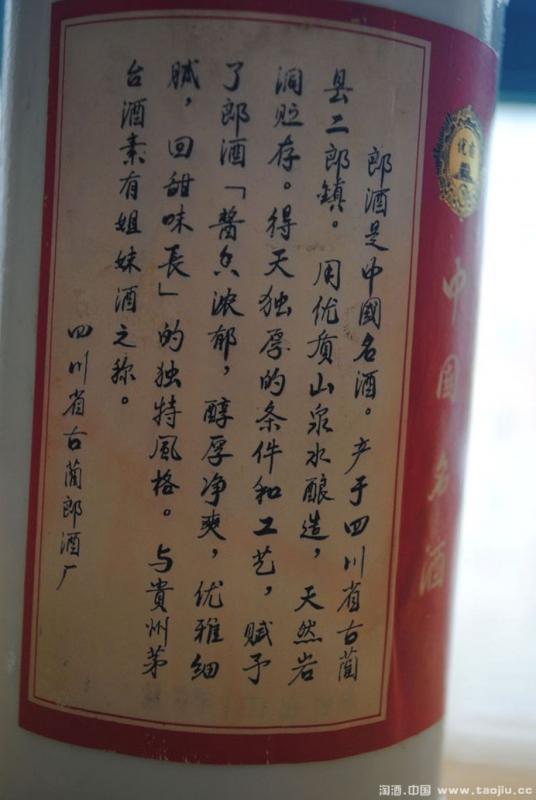 郎酒是中國名酒。产于四川省古蔺
县二郎鎮。用优质山泉水酿造，天然岩
洞贮存。得天独厚的条件和工艺，赋予
了郎酒「醬香浓郁，醇厚净爽，优雅细
腻，回甜味長」的独特風格。与貴州茅
台酒素有姐妹酒之称。
四川省古蔺郎酒厂
中国名酒
淘酒.中国 www.taojiu.cc